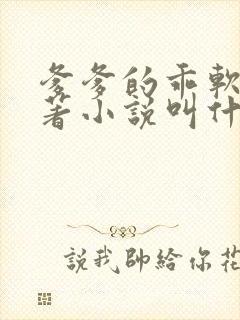 爹爹的乖軟
著小説叫什
説我帥給你花